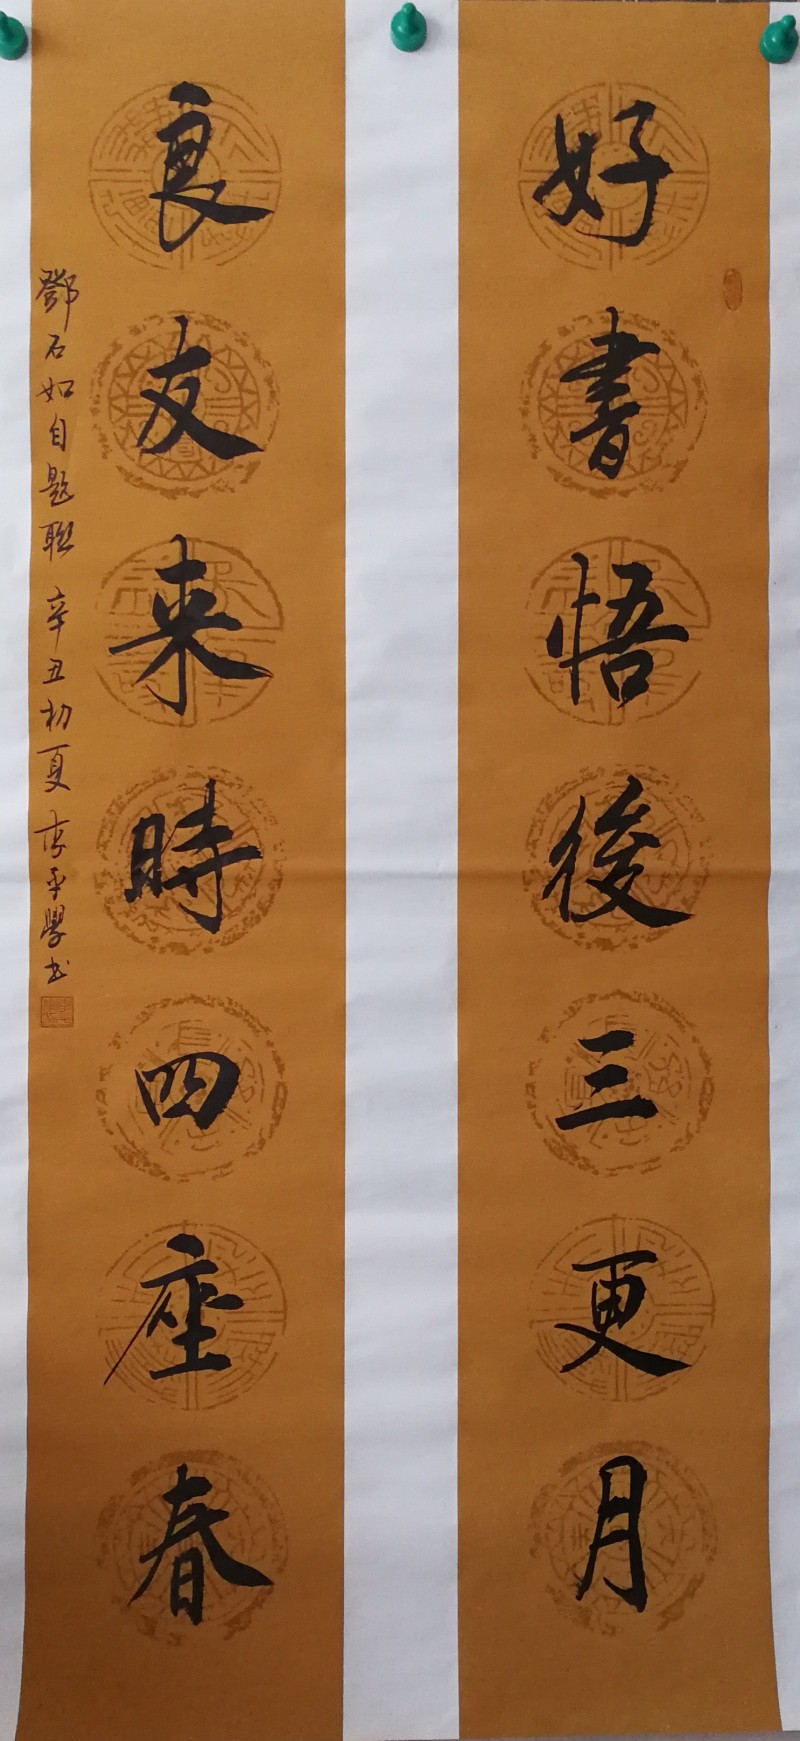 好書悟後三更月
良友来時四座春
鄧石如自題聯 辛丑初夏 李平學書